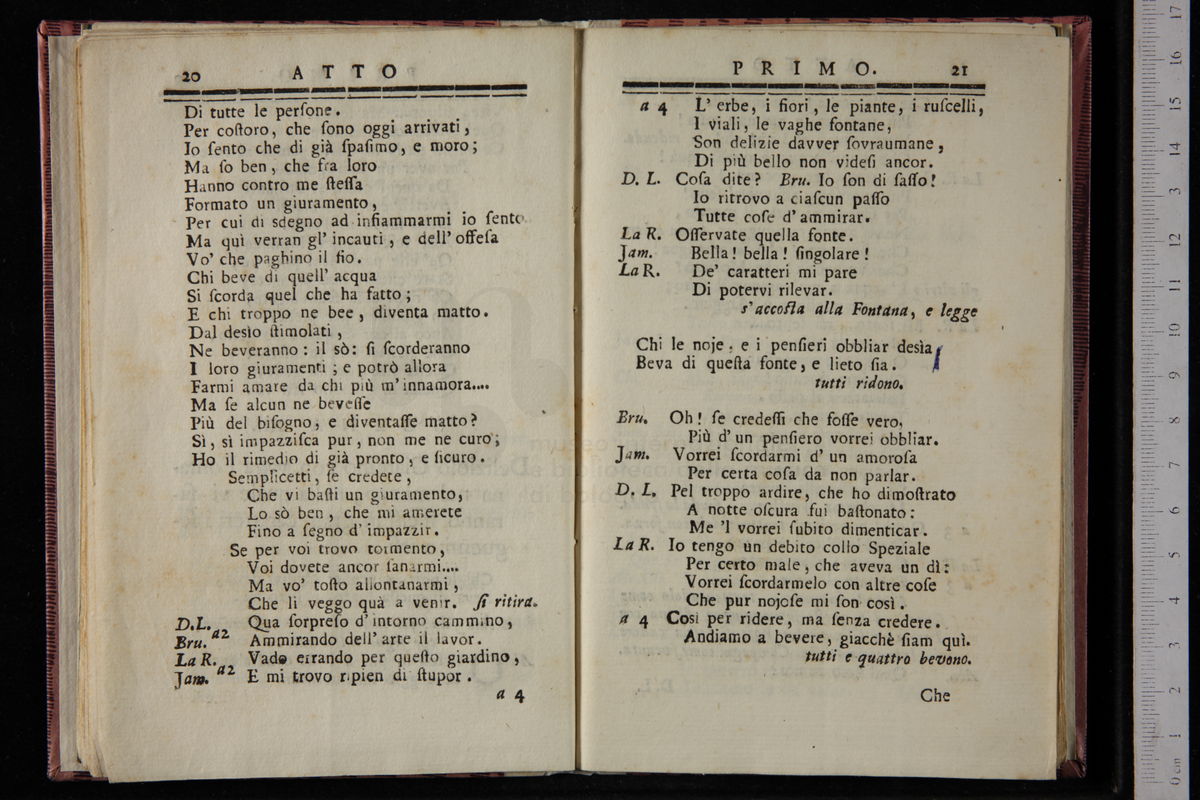 20 ATTO
Di tutte le perſone.
Per coſtoro, che ſono oggi arrivati,
Io ſento che di già ſpaſimo, e moro;
Ma ſo ben, che fra loro
Hanno contro me ſteſſa
Formato un giuramento,
Per cui di sdegno ad infiammarmi io ſento
Ma quì verran gl' incauti, e dell' offeſa
Vo' che paghino il fio.
Chi beve di quell' acqua
Si ſcorda quel che ha fatto;
E chi troppo ne bee, diventa matto.
Dal desìo ſtimolati,
Ne beveranno: il sò: ſi ſcorderanno
I loro giuramenti; e potrò allora
Farmi amare da chi più m' innamora....
Ma ſe alcun ne beveſſe
Più del biſogno, e diventaſſe matto?
Sì, sì impazziſca pur, non me ne curo;
Ho il rimedio di già pronto, e ſicuro.
Semplicetti, ſe credete,
Che vi baſti un giuramento,
Lo sò ben, che mi amerete
Fino a ſegno d' impazzir.
Se per voi trovo tormento,
Voi dovete ancor ſanarmi....
Ma vo' toſto allontanarmi,
Che li veggo quà a venir. ſi ritira.
D.L. Qua ſorpreſo d' intorno cammino,
Bru. a2 Ammirando dell' arte il lavor.
La R. Vado errando per queſto giardino,
Jam. a2 E mi trovo ripien di ſtupor.
a 4
PRIMO. 21
a 4 L' erbe, i fiori, le piante, i ruſcelli,
I viali, le vaghe fontane,
Son delizie davver ſovraumane,
Di più bello non videſi ancor.
D. L. Coſa dite? Bru. Io ſon di ſaſſo!
Io ritrovo a ciaſcun paſſo
Tutte coſe d' ammirar.
La R. Oſſervate quella fonte.
Jam. Bella! bella! ſingolare!
La R. De' caratteri mi pare
Di potervi rilevar.
s' accoſta alla Fontana, e legge
Chi le noje, e i penſieri obbliar desìa,
Beva di queſta fonte, e lieto ſia.
tutti ridono.
Bru. Oh! ſe credeſſi che foſſe vero,
Più d' un penſiero vorrei obbliar.
Jam. Vorrei ſcordarmi d' un amoroſa
Per certa coſa da non parlar.
D. L. Pel troppo ardire, che ho dimoſtrato
A notte oſcura fui baſtonato:
Me 'l vorrei ſubito dimenticar.
La R. Io tengo un debito collo Speziale
Per certo male, che aveva un dì:
Vorrei ſcordarmelo con altre coſe
Che pur nojoſe mi ſon così.
a 4 Così per ridere, ma ſenza credere.
Andiamo a bevere, giacchè ſiam quì.
tutti e quattro bevono.
Che